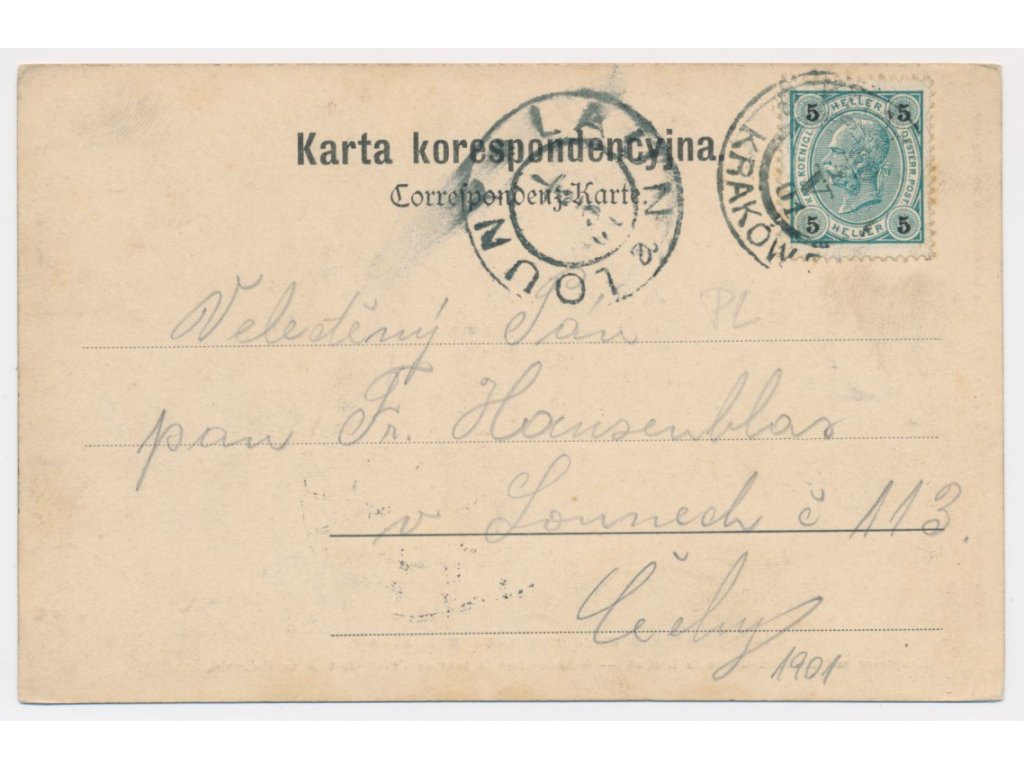 Karta korespondencyjna.
Correspondenz-Karte.
LAUN & LOUNY
KRAKÓW
01
5 HELLER 5
KAIS. KOENIGL. OESTERR. POST
5 HELLER 5
PL
Veleděný Pán
pan Fr. Hansenblas
v Lounech č 113.
Čechy
1901